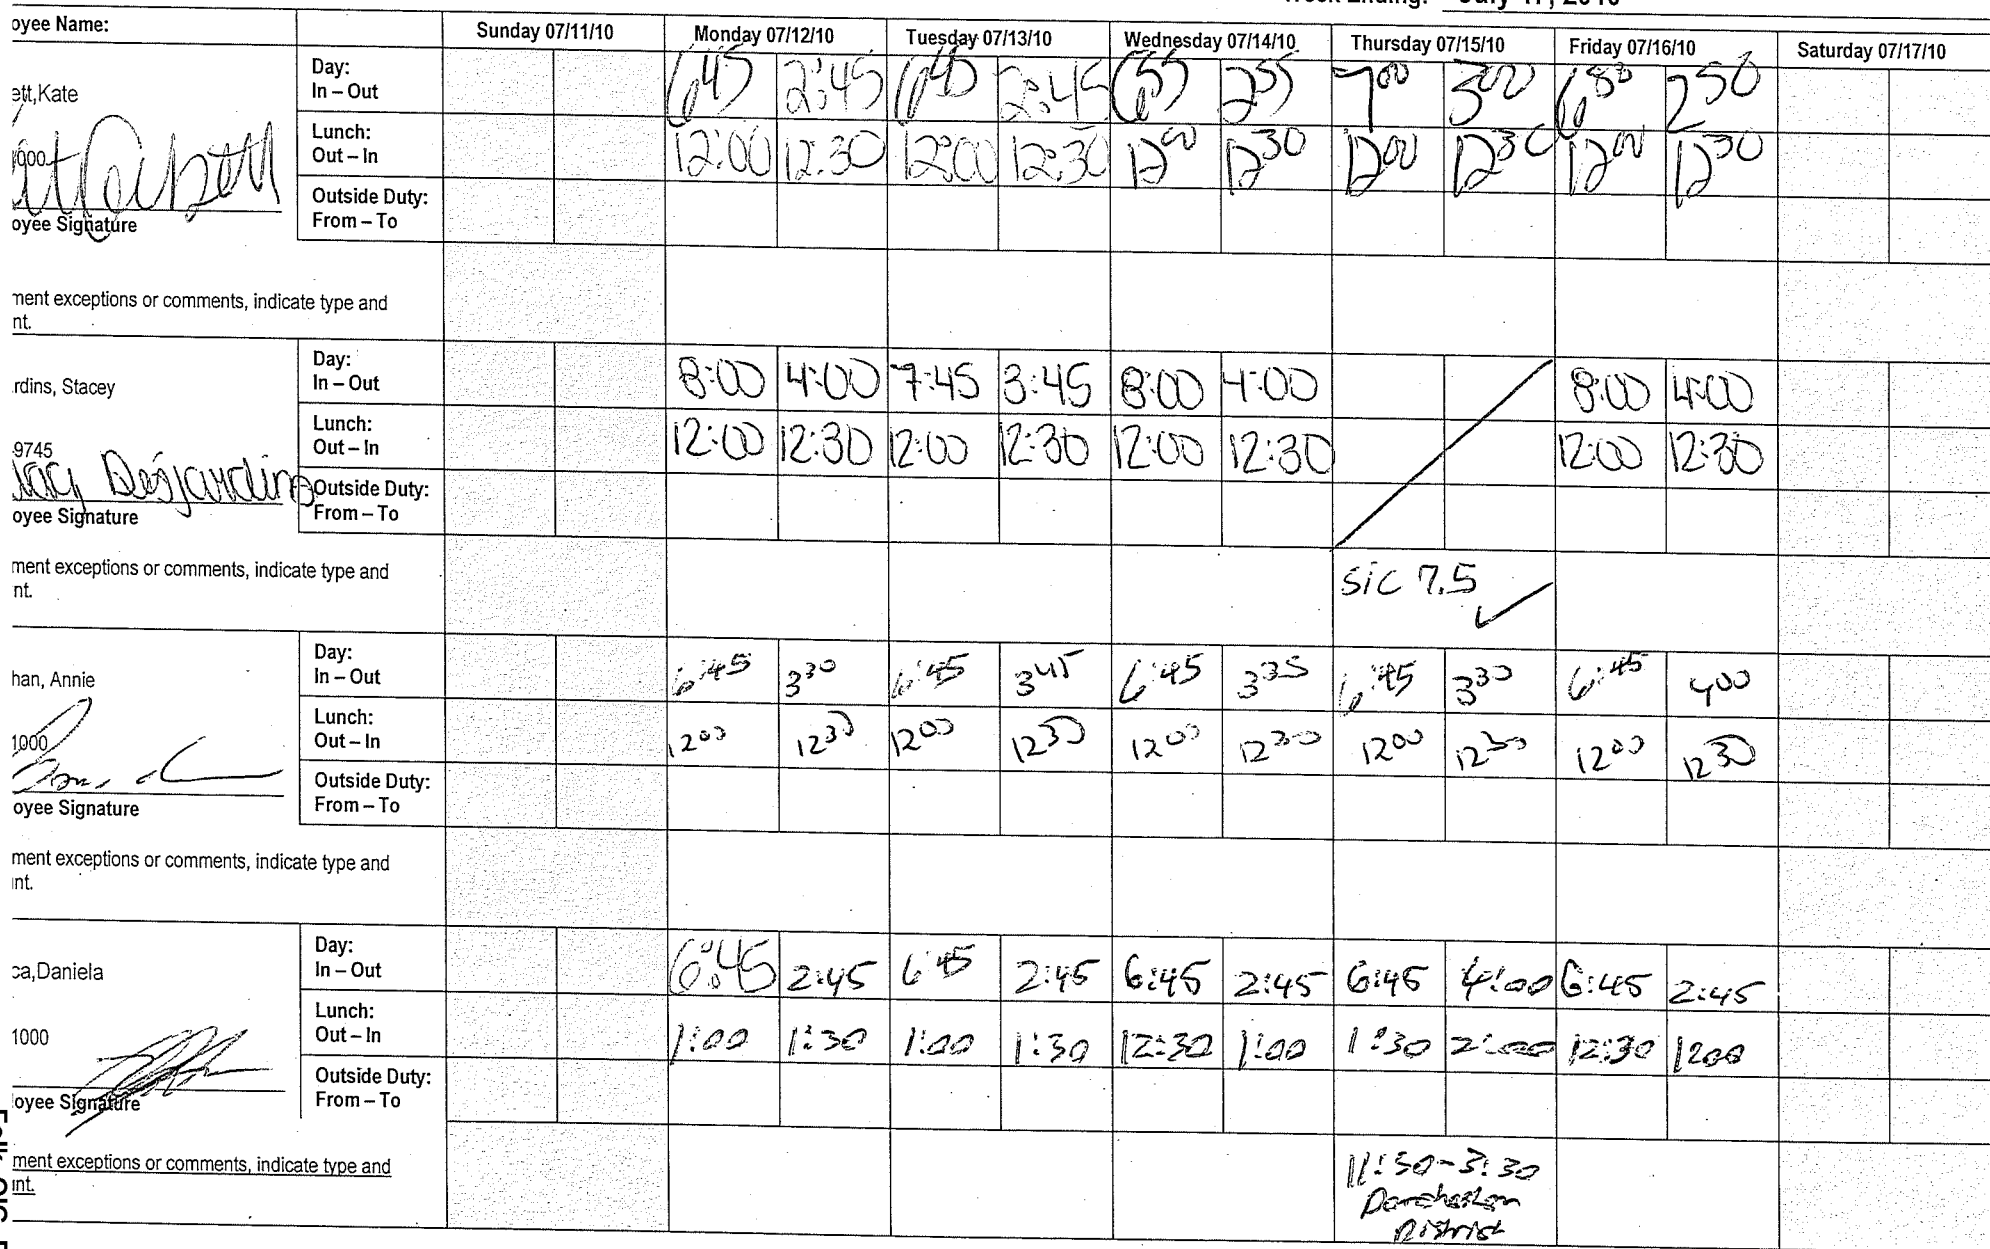 oyee Name: Sunday 07/11/10 Monday 07/12/10 Tuesday 07/13/10 Wednesday 07/14/10 Thursday 07/15/10 Friday 07/16/10 Saturday 07/17/10
ett,Kate
Day:
In – Out 6 45 2:45 6 45 2:45 6 55 2 55 7 00 3 00 6 50 2 50
1000
Lunch:
Out – In 12:00 12:30 12:00 12:30 12 00 12 30 12 00 12 30 12 00 12 30
Outside Duty:
From – To
oyee Signature
ment exceptions or comments, indicate type and
nt.
rdins, Stacey
Day:
In – Out 8:00 4:00 7:45 3:45 8:00 4:00 8:00 4:00
9745
Lunch:
Out – In 12:00 12:30 12:00 12:30 12:00 12:30 12:00 12:30
Desjardins
Outside Duty:
From – To
oyee Signature
ment exceptions or comments, indicate type and
nt.
sic 7.5
han, Annie
Day:
In – Out 6:45 3 30 6:45 3 45 6:45 3 35 6:45 3 30 6:45 4 00
1000
Lunch:
Out – In 12 00 12 30 12 00 12 30 12 00 12 30 12 00 12 30 12 00 12 30
Outside Duty:
From – To
oyee Signature
ment exceptions or comments, indicate type and
int.
ca,Daniela
Day:
In – Out 6:45 2:45 6:45 2:45 6:45 2:45 6:45 4:00 6:45 2:45
1000
Lunch:
Out – In 1:00 1:30 1:00 1:30 12:30 1:00 1:30 2:00 12:30 1200
Outside Duty:
From – To
oyee Signature
ment exceptions or comments, indicate type and
int.
11:50-3:30
District